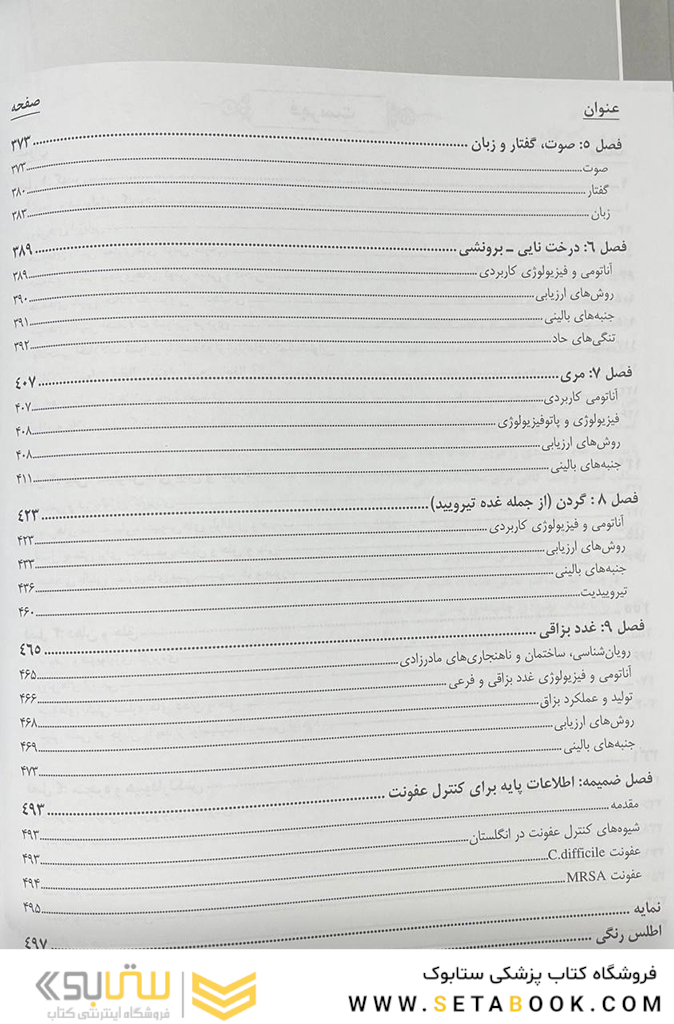 عنوان صفحه
فصل ۵: صوت، گفتار و زبان ۳۷۳
صوت ۳۷۳
گفتار ۳۸۰
زبان ۳۸۳
فصل ۶: درخت نایی ـ برونشی ۳۸۹
آناتومی و فیزیولوژی کاربردی ۳۸۹
روش‌های ارزیابی ۳۹۰
جنبه‌های بالینی ۳۹۱
تنگی‌های حاد ۳۹۲
فصل ۷: مری ۴۰۷
آناتومی کاربردی ۴۰۷
فیزیولوژی و پاتوفیزیولوژی ۴۰۸
روش‌های ارزیابی ۴۰۸
جنبه‌های بالینی ۴۱۱
فصل ۸: گردن (از جمله غده تیرویید) ۴۲۳
آناتومی و فیزیولوژی کاربردی ۴۲۳
روش‌های ارزیابی ۴۳۳
جنبه‌های بالینی ۴۳۶
تیروییدیت ۴۶۰
فصل ۹: غدد بزاقی ۴۶۵
رویان‌شناسی، ساختمان و ناهنجاری‌های مادرزادی ۴۶۵
آناتومی و فیزیولوژی غدد بزاقی و فرعی ۴۶۶
تولید و عملکرد بزاق ۴۶۸
روش‌های ارزیابی ۴۶۹
جنبه‌های بالینی ۴۷۳
فصل ضمیمه: اطلاعات پایه برای کنترل عفونت ۴۹۳
مقدمه ۴۹۳
شیوه‌های کنترل عفونت در انگلستان ۴۹۳
عفونت C.difficile ۴۹۴
عفونت MRSA ۴۹۵
نمایه ۴۹۷
اطلس رنگی
فروشگاه کتاب پزشکی ستابوک
WWW.SETABOOK.COM
ستابوک
فروشگاه اینترنتی کتاب